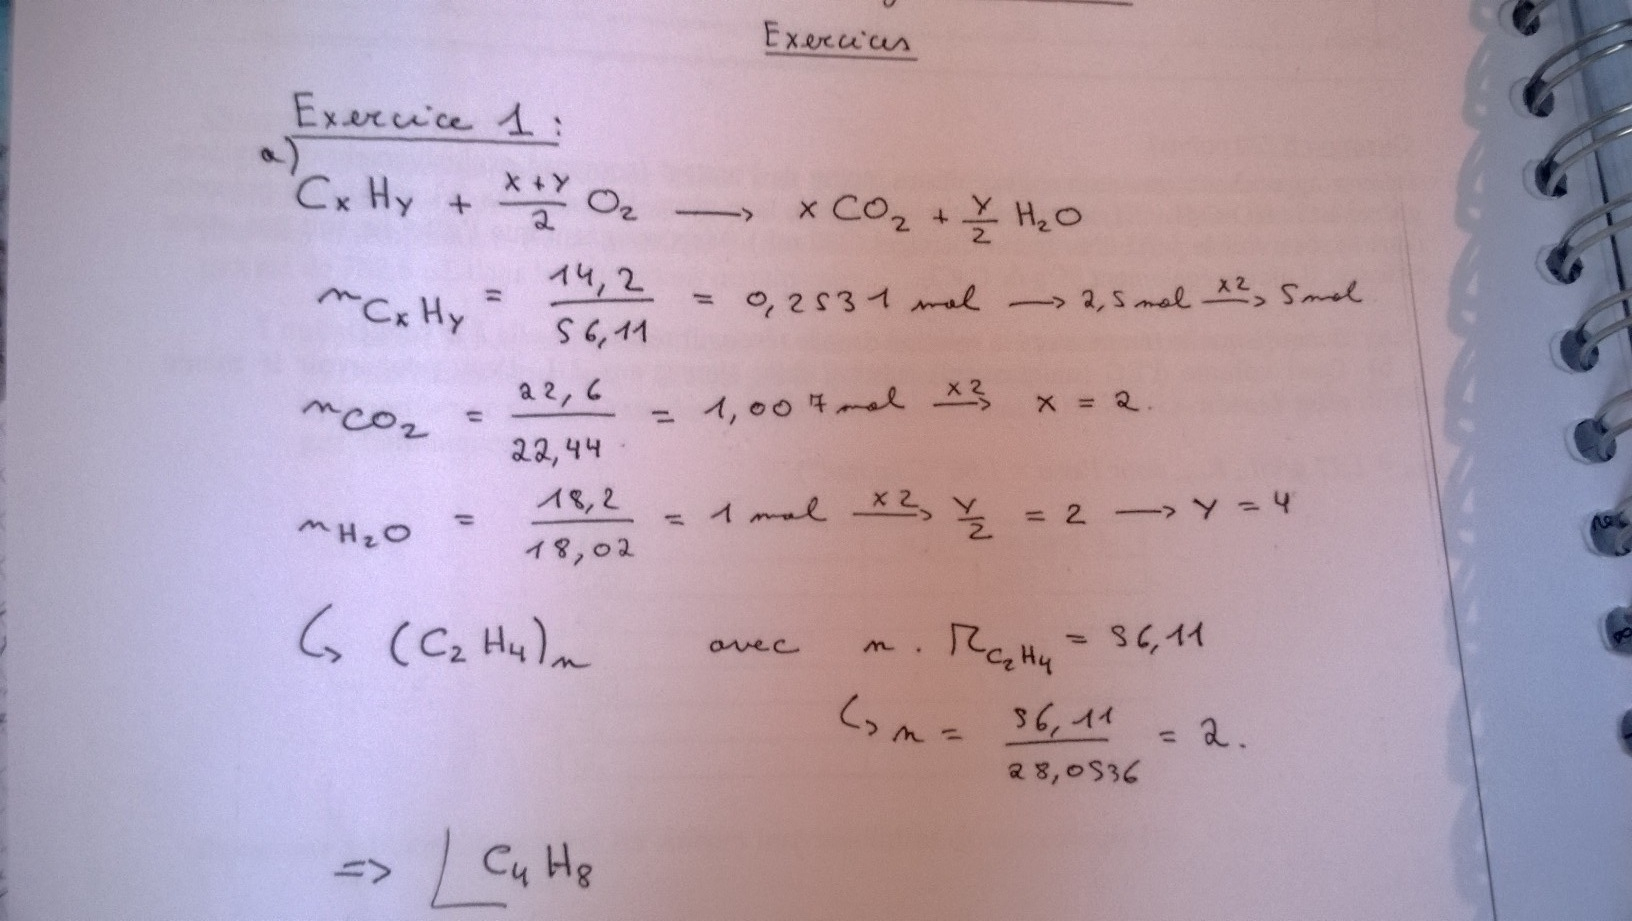 Exercices
Exercice 1 :
a)
CxHy + (x+y)/2 O₂ → x CO₂ + y/2 H₂O
n CxHy = 14,2/56,11 = 0,2531 mol → 2,5 mol ×2→ 5 mol
n CO₂ = 22,6/22,44 = 1,007 mol ×2→ x = 2.
n H₂O = 18,2/18,02 = 1 mol ×2→ y/2 = 2 → y = 4
↳ (C₂H₄)n avec n . M C₂H₄ = 56,11
↳ n = 56,11/28,0536 = 2.
=> C₄H₈